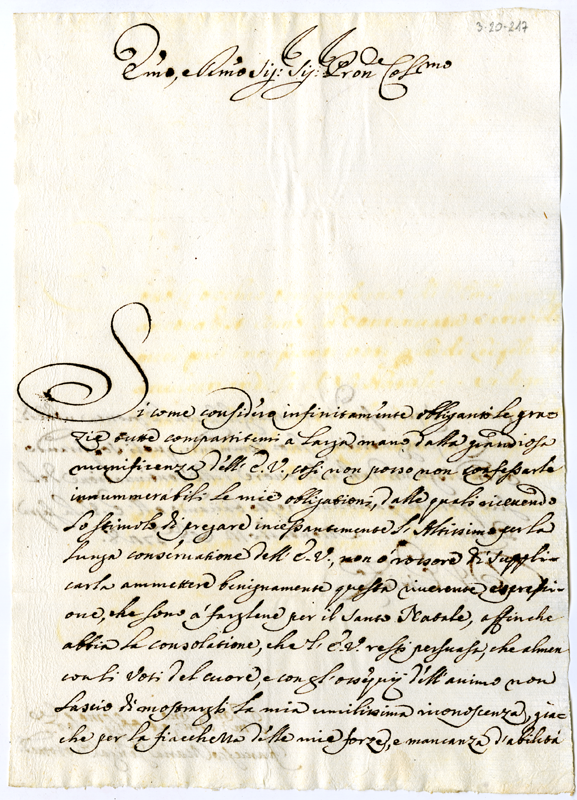 3-20-217
Emo, e Rmo Sig: Sig: Pron Colmo
Si come considero infinitamente obliganti le gra=
zie tutte compartitemi a larga mano dalla grandiosa
munificenza dell' E.V., così non posso non confessarle
innumerabili le mie obligationi, dalle quali ricevendo
lo stimolo di pregare incessantemente l'Altissimo per la
lunga conservatione dell' E.V., non ò rossore di suppli=
carla ammettere benignamente questa riverente espressi=
one, che sono a' fargliene per il Santo Natale, affinche
abbia la consolatione, che l' E.V. resti persuasa, che almen
con li voti del cuore, e con gl'ossequij dell'animo non
lascio di mostrargli la mia umilissima riconoscenza, giac
che per la fiacchezza delle mie forze, e mancanza d'abilità